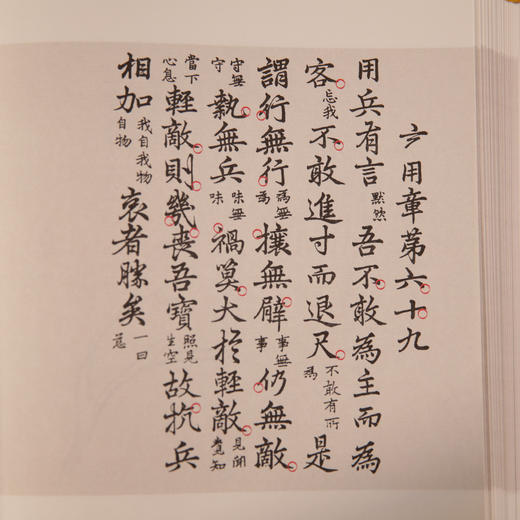 玄用章第六十九
用兵有言默然吾不敢為主而為
客忘我不敢進寸而退尺不敢有所為是
謂行無行為無為攘無臂事無事仍無敵
守無守執無兵味無味禍莫大扵輕敵見聞覺知
當下心息輕敵則幾喪吾寶照見生空故抗兵
相加我自我物自物哀者勝矣一曰慈